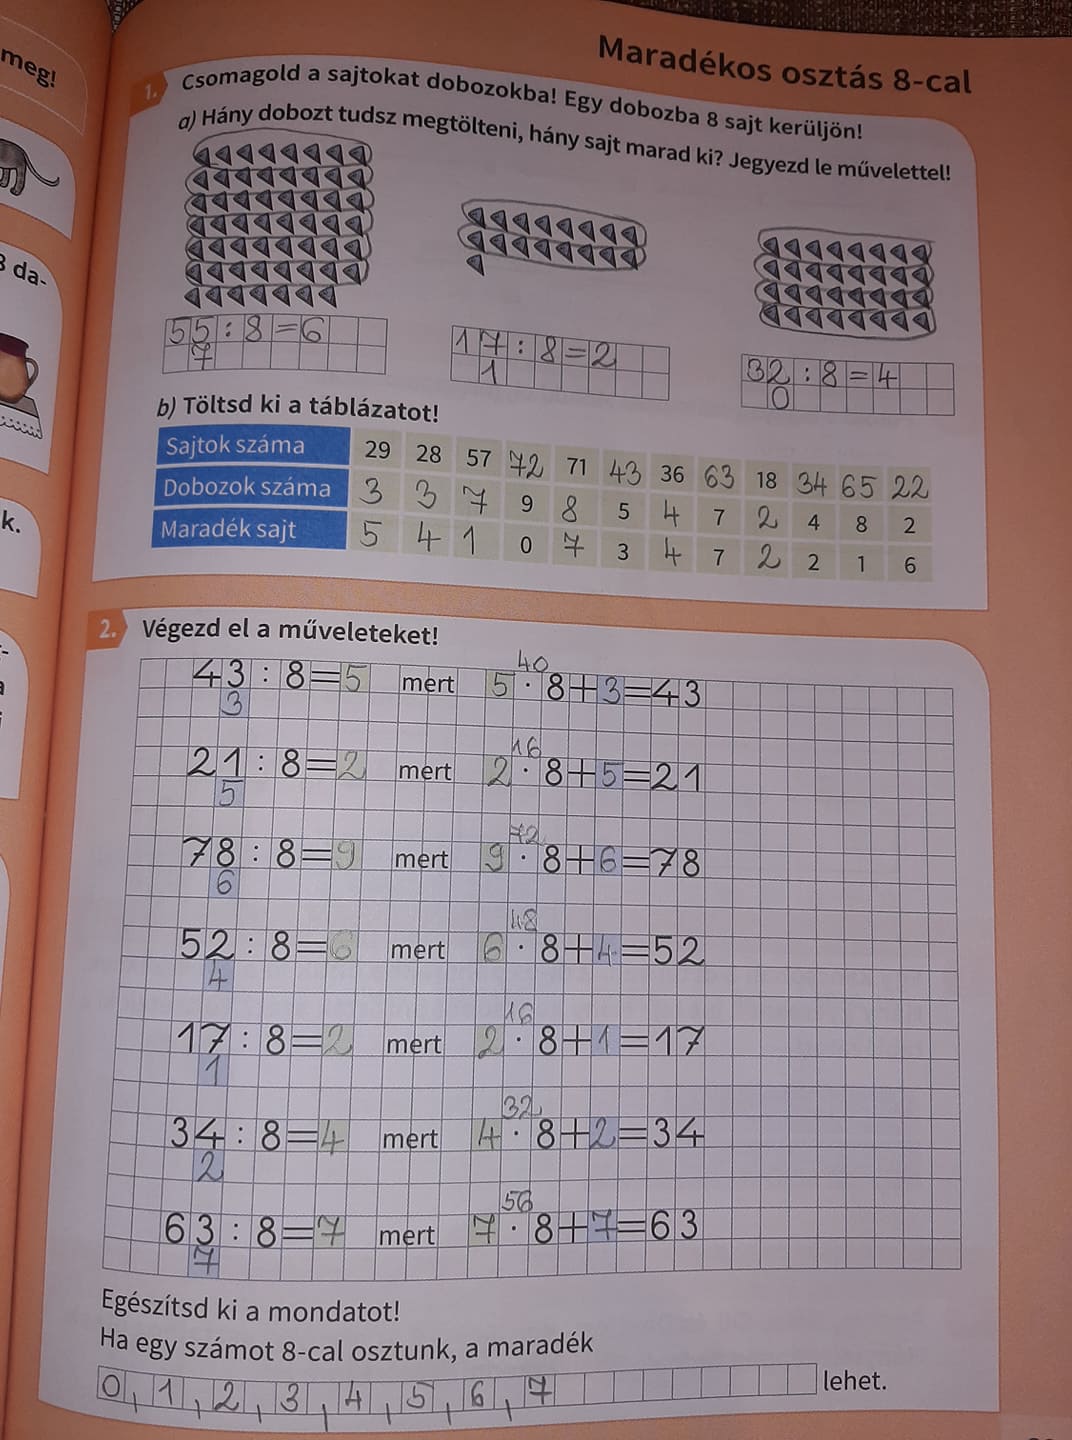 meg!
3 da-
k.
Maradékos osztás 8-cal
1. Csomagold a sajtokat dobozokba! Egy dobozba 8 sajt kerüljön!
a) Hány dobozt tudsz megtölteni, hány sajt marad ki? Jegyezd le művelettel!
55:8=6
7
17:8=2
1
32:8=4
0
b) Töltsd ki a táblázatot!
Sajtok száma 29 28 57 72 71 43 36 63 18 34 65 22
Dobozok száma 3 3 7 9 8 5 4 7 2 4 8 2
Maradék sajt 5 4 1 0 7 3 4 7 2 2 1 6
2. Végezd el a műveleteket!
40
43:8=5 mert 5·8+3=43
3
16
21:8=2 mert 2·8+5=21
5
72
78:8=9 mert 9·8+6=78
6
48
52:8=6 mert 6·8+4=52
4
16
17:8=2 mert 2·8+1=17
1
32
34:8=4 mert 4·8+2=34
2
56
63:8=7 mert 7·8+7=63
7
Egészítsd ki a mondatot!
Ha egy számot 8-cal osztunk, a maradék
0, 1, 2, 3, 4, 5, 6, 7 lehet.